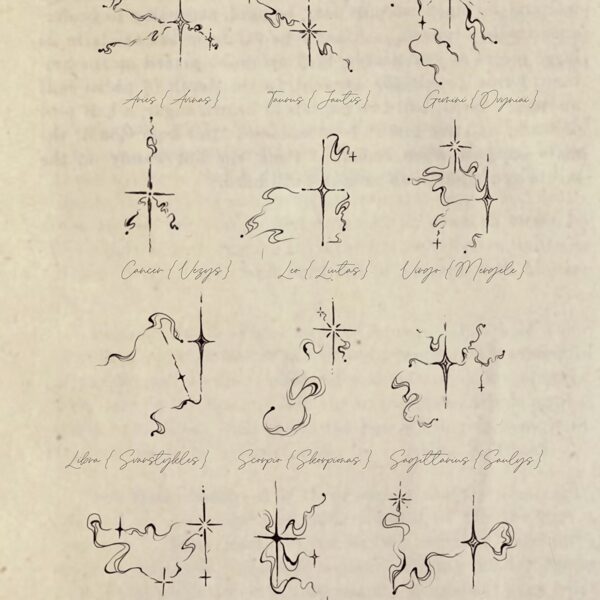 Aries { Avinas }
Taurus { Jautis }
Gemini { Dvyniai }
Cancer { Vezys }
Leo { Liutas }
Virgo { Mergele }
Libra { Svarstykles }
Scorpio { Skorpionas }
Sagittarius { Saulys }